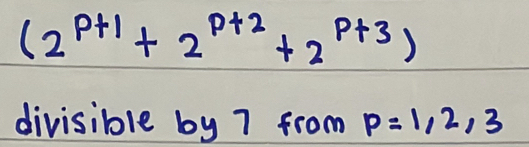 (2^{p+1} + 2^{p+2} + 2^{p+3})
divisible by 7 from p=1,2,3